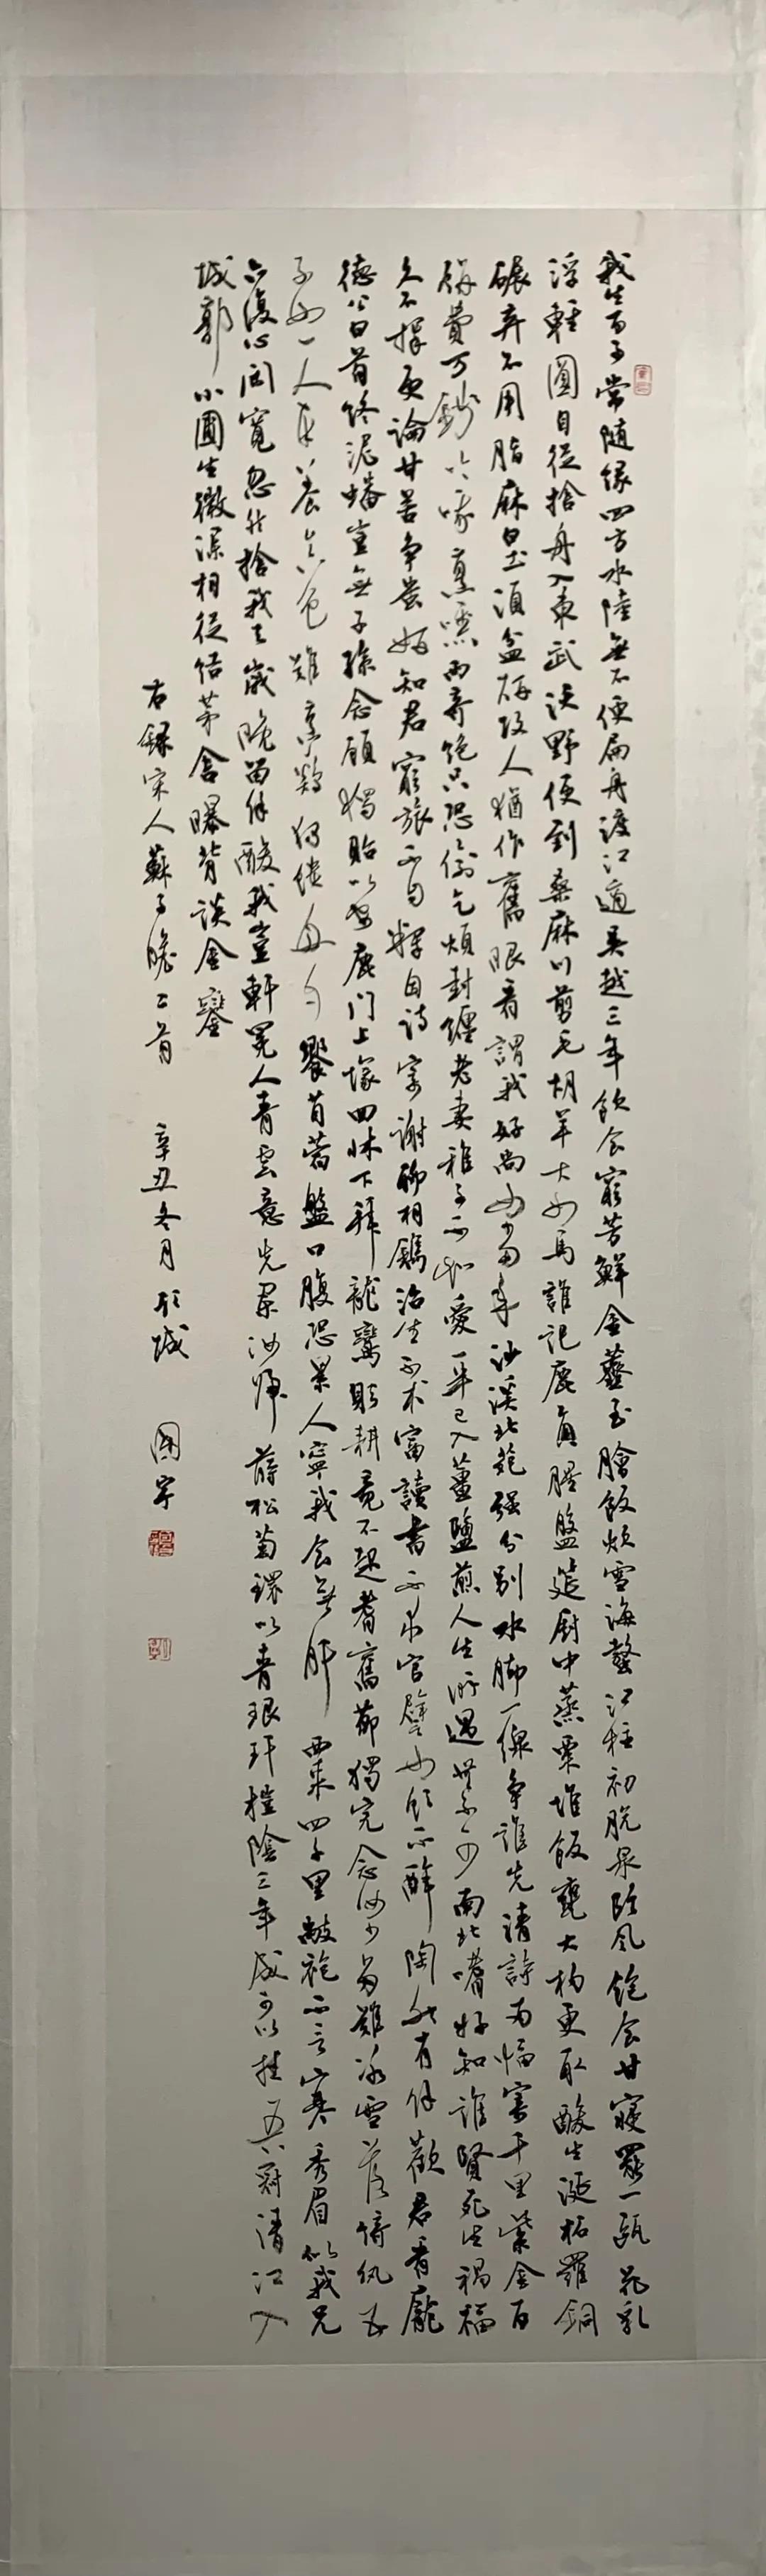 我生百事常隨緣四方水陸無不便扁舟渡江適吳越三年飲食窮芳鮮金虀玉膾飯炊雪海螯江柱初脫泉臨風飽食甘寢罷一甌花乳
浮輕圓自從捨舟入東武沃野便到桑麻川剪毛胡羊大如馬誰記鹿角腥盤筵廚中蒸粟堆飯甕大杓更取酸生涎柘羅銅
碾棄不用脂麻白土須盆研故人猶作舊眼看謂我好尚如當年沙溪北苑強分別水腳一線爭誰先清詩兩幅寄千里紫金百
餅費萬錢吟哦烹噍兩奇絕只恐偷乞煩封纏老妻稚子不知愛一半已入薑鹽煎人生所遇無不可南北嗜好知誰賢死生禍福
久不擇更論甘苦爭蚩妍知君窮旅不自釋因詩寄謝聊相鐫治生不求富讀書不求官譬如飲不醉陶然有餘歡君看龐
德公白首終泥蟠豈無子孫念顧獨貽以安鹿門上塚回牀下拜龍鸞躬耕竟不起耆舊節獨完念汝少多難冰雪落綺紈五
子如一人奉養真色難烹雞獨饋母自饗苜蓿盤口腹恐累人寧我食無肝西來四千里敝袍不言寒秀眉似我兄
亦復心閑寬忽然捨我去歲晚留餘酸我豈軒冕人青雲意先闌汝歸蒔松菊環以青琅玕榿陰三年成可以挂我冠清江入
城郭小圃生微瀾相從結茅舍曝背談金鑾
右錄宋人蘇子瞻二首 辛丑冬月於城 國宇